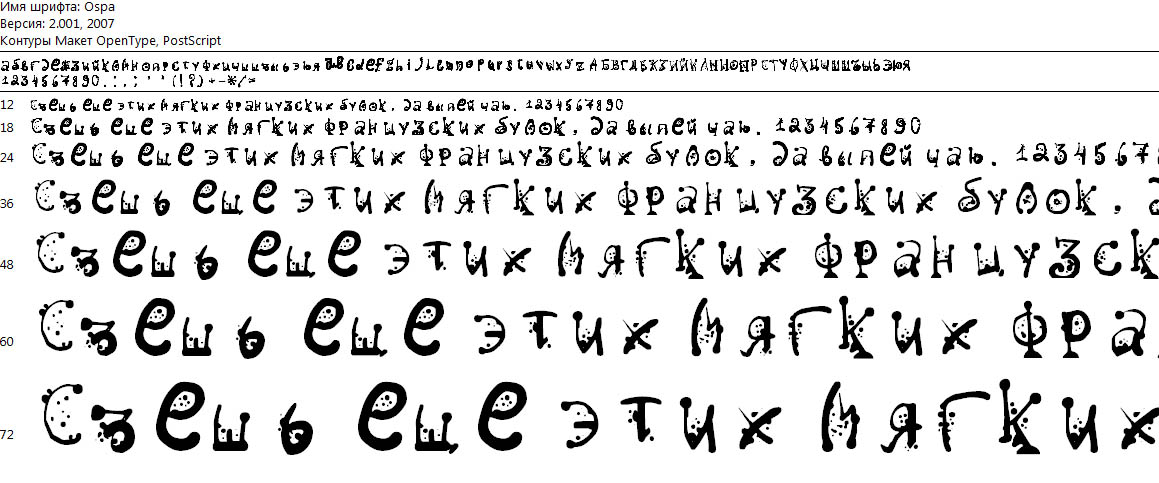 Имя шрифта: Ospa
Версия: 2.001, 2007
Контуры Макет OpenType, PostScript
абвгдежзийклмнопрстуфхцчшщъыьэюя abcdefghijklmnopqrstuvwxyz АБВГДЕЖЗИЙКЛМНОПРСТУФХЦЧШЩЪЫЬЭЮЯ
1234567890.:,; ' " (!?) +-*/=
12 Съешь еще этих мягких французских булок, да выпей чаю. 1234567890
18 Съешь еще этих мягких французских булок, да выпей чаю. 1234567890
24 Съешь еще этих мягких французских булок, да выпей чаю. 12345678
36 Съешь еще этих мягких французских булок,
48 Съешь еще этих мягких французск
60 Съешь еще этих мягких фра
72 Съешь еще этих мягких